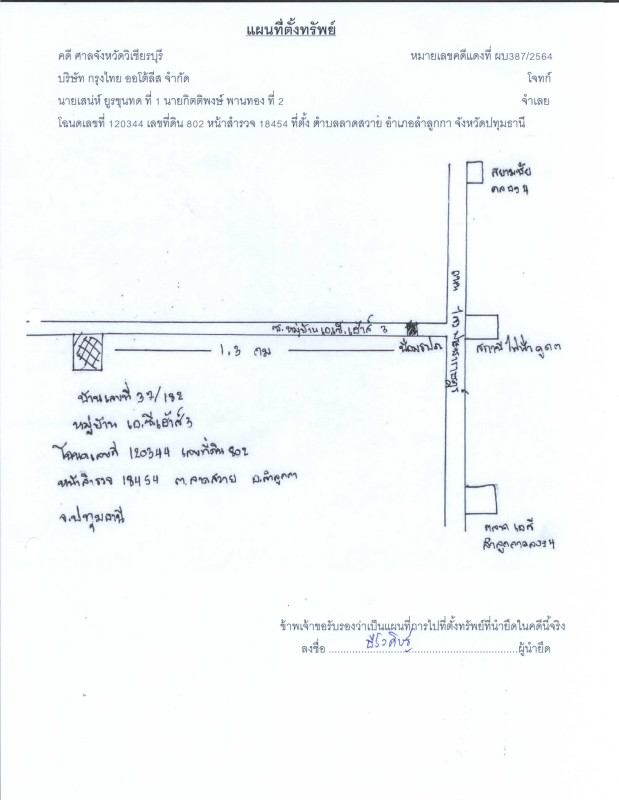 แผนที่ตั้งทรัพย์
คดี ศาลจังหวัดวิเชียรบุรี
หมายเลขคดีแดงที่ ผบ387/2564
บริษัท กรุงไทย ออโต้ลีส จำกัด
โจทก์
นายเสน่ห์ ยูรชุนทด ที่ 1 นายกิตติพงษ์ พานทอง ที่ 2
จำเลย
โฉนดเลขที่ 120344 เลขที่ดิน 802 หน้าสำรวจ 18454 ที่ตั้ง ตำบลลาดสวาย อำเภอลำลูกกา จังหวัดปทุมธานี
สยามชัย
คลอง 4
ถนน
ซ.หมู่บ้าน เอ.ซี.เฮ้าส์ 3
1.3 กม
ป้อมรปภ
สถานีไฟฟ้า
บ้านเลขที่ 37/182
หมู่บ้าน เอ.ซีเฮ้าส์ 3
โฉนดเลขที่ 120344 เลขที่ดิน 802
หน้าสำรวจ 18454 ต.ลาดสวาย อ.ลำลูกกา
จ.ปทุมธานี
ตลาด เอซี
ลำลูกกาคลอง 4
ข้าพเจ้าขอรับรองว่าเป็นแผนที่การไปที่ตั้งทรัพย์ที่นำยึดในคดีนี้จริง
ลงชื่อ ผู้นำยึด